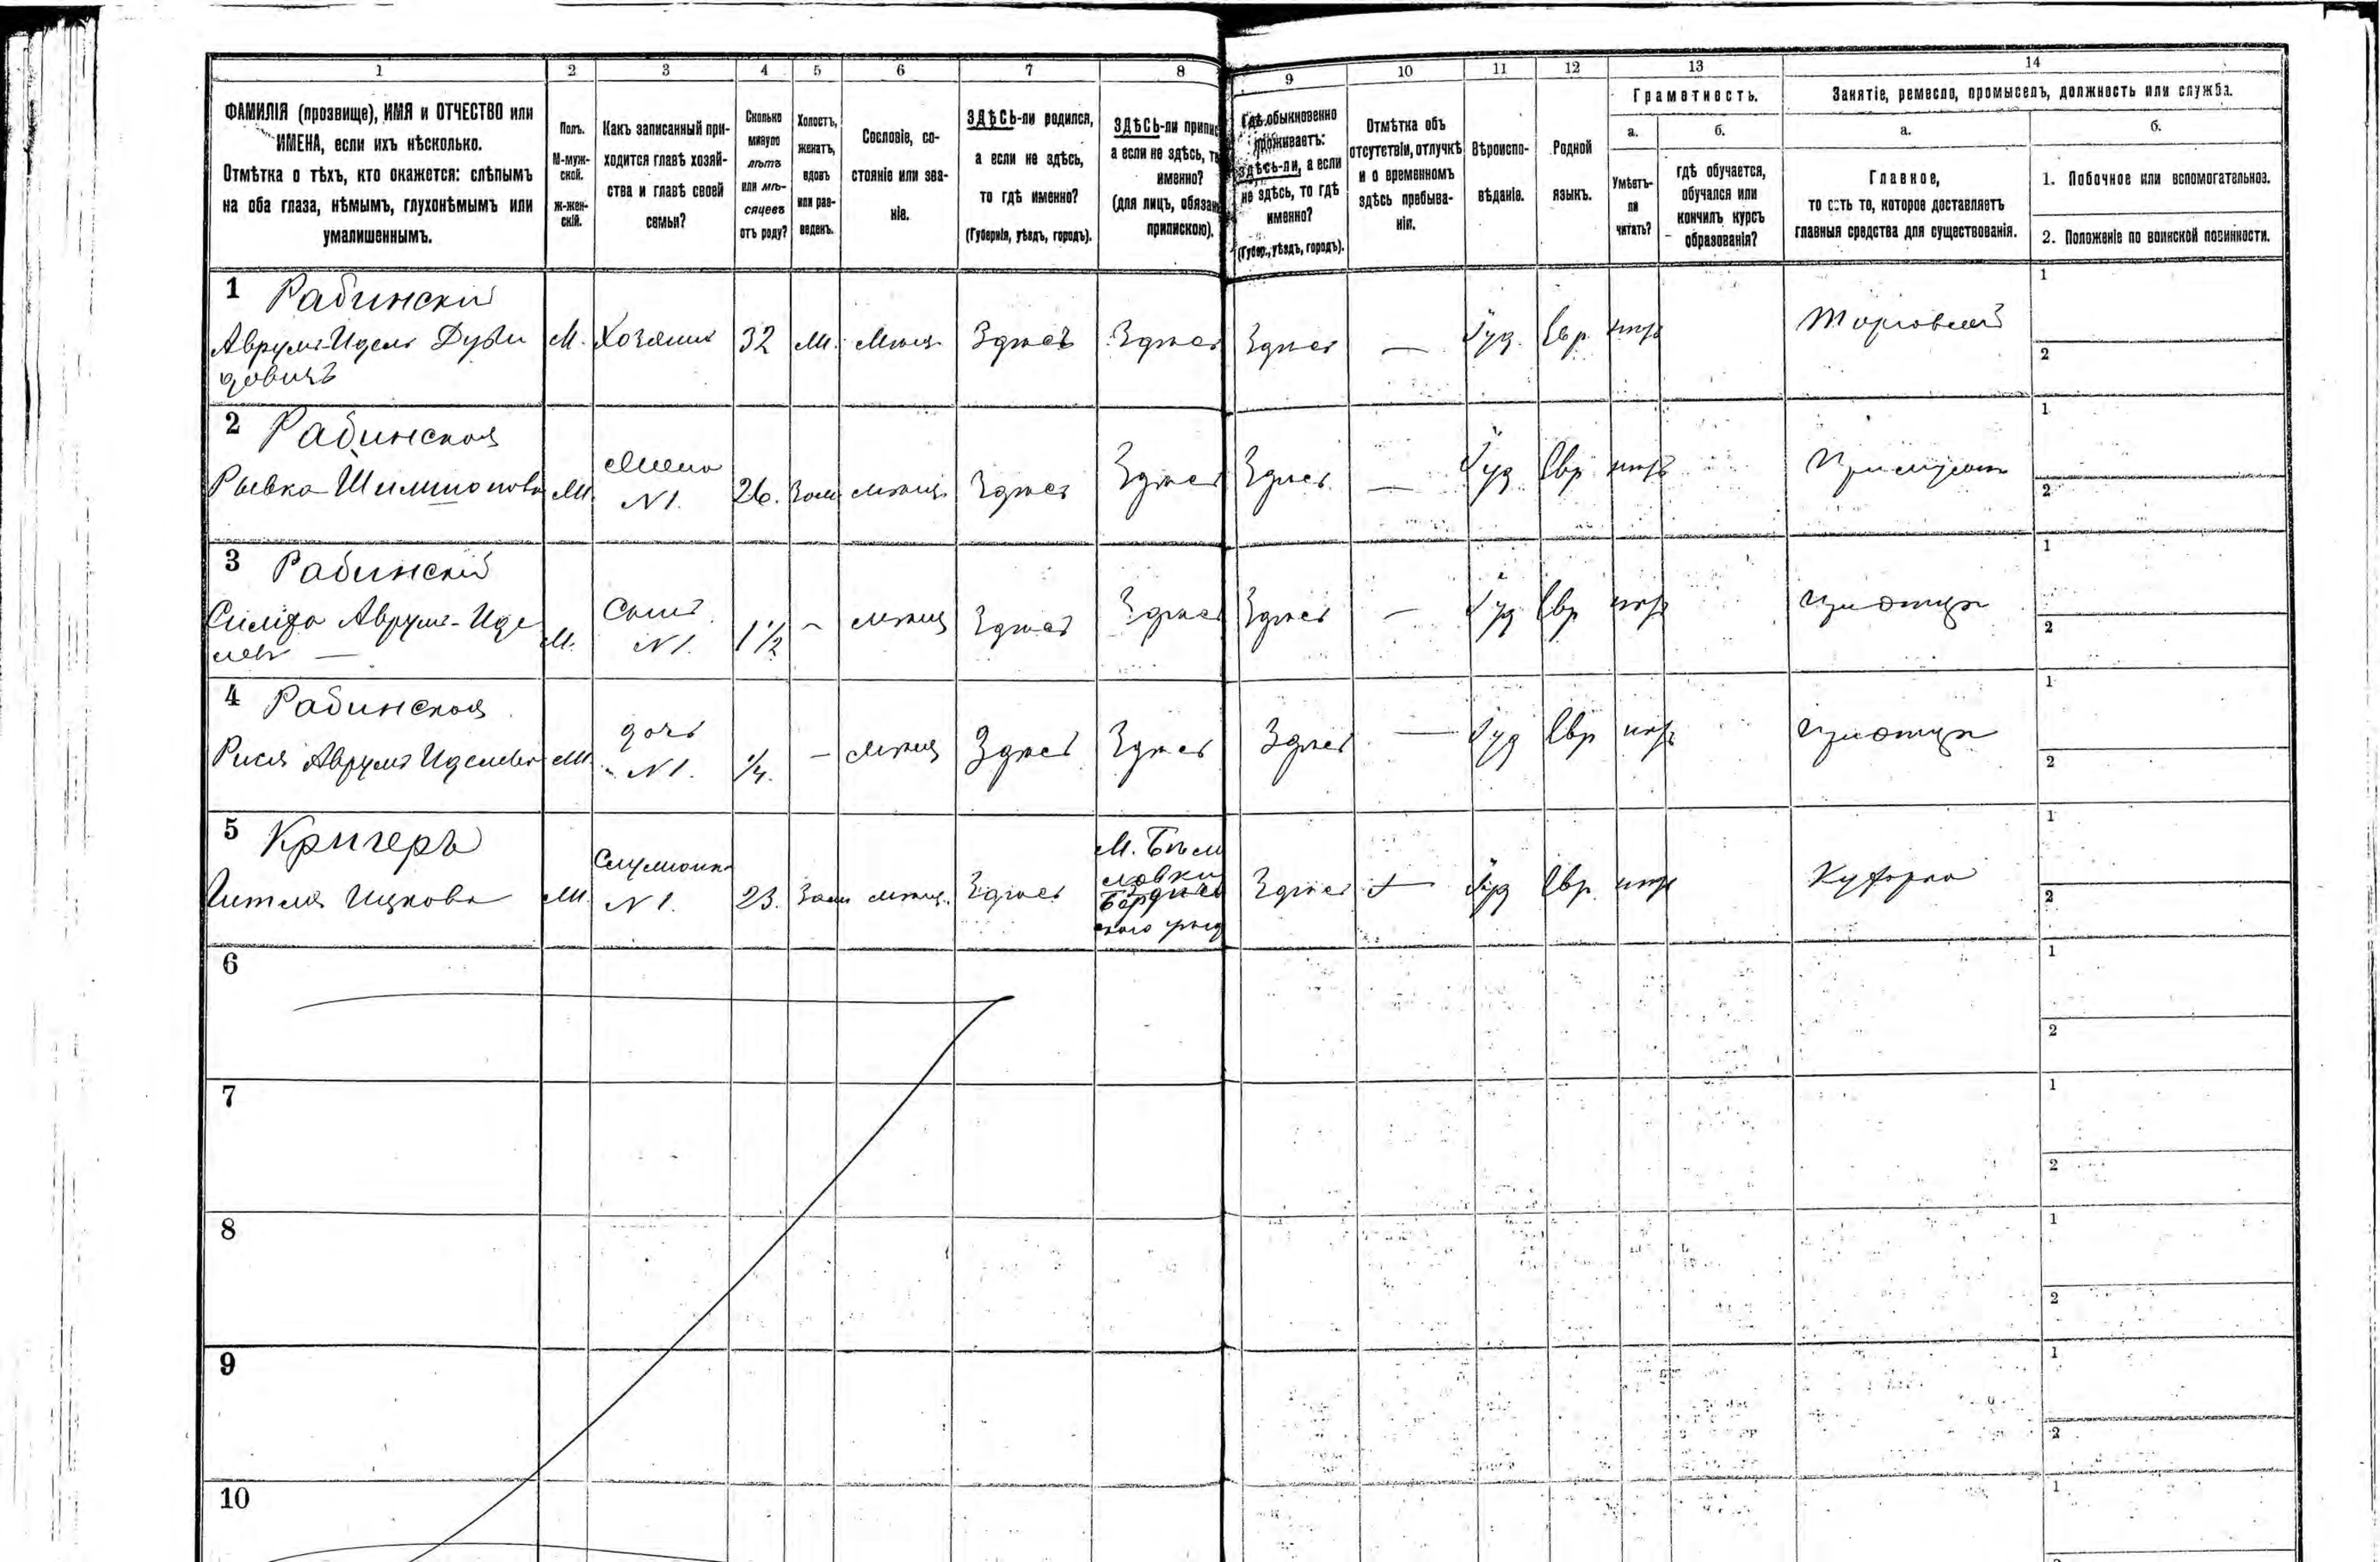 1 2 3 4 5 6 7 8 9 10 11 12 13 14
ФАМИЛІЯ (прозвище), ИМЯ и ОТЧЕСТВО или
ИМЕНА, если ихъ нѣсколько.
Отмѣтка о тѣхъ, кто окажется: слѣпымъ
на оба глаза, нѣмымъ, глухонѣмымъ или
умалишеннымъ.
Полъ.
М-муж-
ской.
Ж-жен-
скій.
Какъ записанный при-
ходится главѣ хозяй-
ства и главѣ своей
семьи?
Сколько
минуло
лѣтъ
или мѣ-
сяцевъ
отъ роду?
Холостъ,
женатъ,
вдовъ
или раз-
веденъ.
Сословіе, со-
стояніе или зва-
ніе.
ЗДѢСЬ-ли родился,
а если не здѣсь,
то гдѣ именно?
(Губернія, уѣздъ, городъ).
ЗДѢСЬ-ли припис
а если не здѣсь, т
именно?
(для лицъ, обязан
припискою).
Гдѣ обыкновенно
проживаетъ:
здѣсь-ли, а если
не здѣсь, то гдѣ
именно?
(Губер., уѣздъ, городъ).
Отмѣтка объ
отсутствіи, отлучкѣ
и о временномъ
здѣсь пребыва-
ніи.
Вѣроиспо-
вѣданіе.
Родной
языкъ.
Грамотность.
а.
Умѣетъ-
ли
читать?
б.
гдѣ обучается,
обучался или
кончилъ курсъ
образованія?
Занятіе, ремесло, промыселъ, должность или служба.
а.
Главное,
то есть то, которое доставляетъ
главныя средства для существованія.
б.
1. Побочное или вспомогательное.
2. Положеніе по воинской повинности.
1 Рабински
Аврумъ-Идель Дуви
довичъ
М. Хозяинъ 32 Здѣсь Здѣсь Здѣсь — Іуд. Евр Торговлей
1
2
2 Рабинская
Рывка
N 1. 26. Зам Здѣсь Здѣсь Здѣсь — Іуд Евр
1
2
3 Рабинскій
Аврумъ-Иде
левъ —
М. Сынъ
N 1. 1 1/2 — Здѣсь Здѣсь Здѣсь — Іуд Евр
1
2
4 Рабинская
Рися Аврумъ Иделева
дочь
N 1. 1/4. — Здѣсь Здѣсь Здѣсь — Іуд Евр
1
2
5 Кригеръ
Ицкова
N 1. 23. Зам Здѣсь
М. Бѣли
ловки
Бердичев
ского уѣзд
Здѣсь — Іуд Евр Кухарка
1
2
6
1
2
7
1
2
8
1
2
9
1
2
10
1